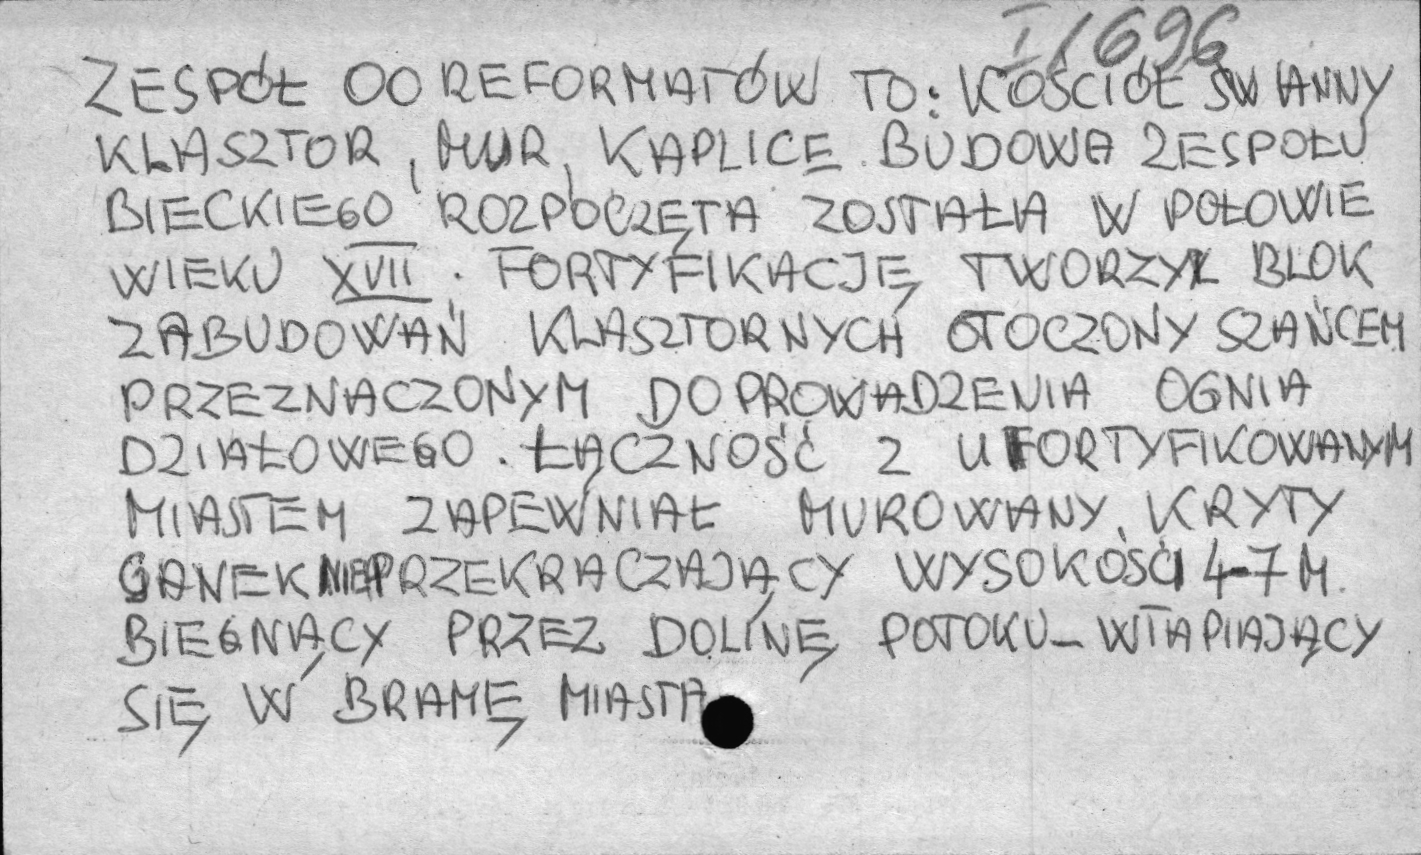 I/696
ZESPÓŁ OO REFORMATÓW TO: KOŚCIÓŁ ŚW ANNY
KLASZTOR, MUR, KAPLICE. BUDOWA ZESPOŁU
BIECKIEGO ROZPOCZĘTA ZOSTAŁA W POŁOWIE
WIEKU XVII. FORTYFIKACJĘ TWORZYŁ BLOK
ZABUDOWAŃ KLASZTORNYCH OTOCZONY SZAŃCEM
PRZEZNACZONYM DO PROWADZENIA OGNIA
DZIAŁOWEGO. ŁĄCZNOŚĆ Z UFORTYFIKOWANYM
MIASTEM ZAPEWNIAŁ MUROWANY, KRYTY
GANEK NIEPRZEKRACZAJĄCY WYSOKOŚCI 4-7 M.
BIEGNĄCY PRZEZ DOLINĘ POTOKU – WTAPIAJĄCY
SIĘ W BRAMĘ MIASTA